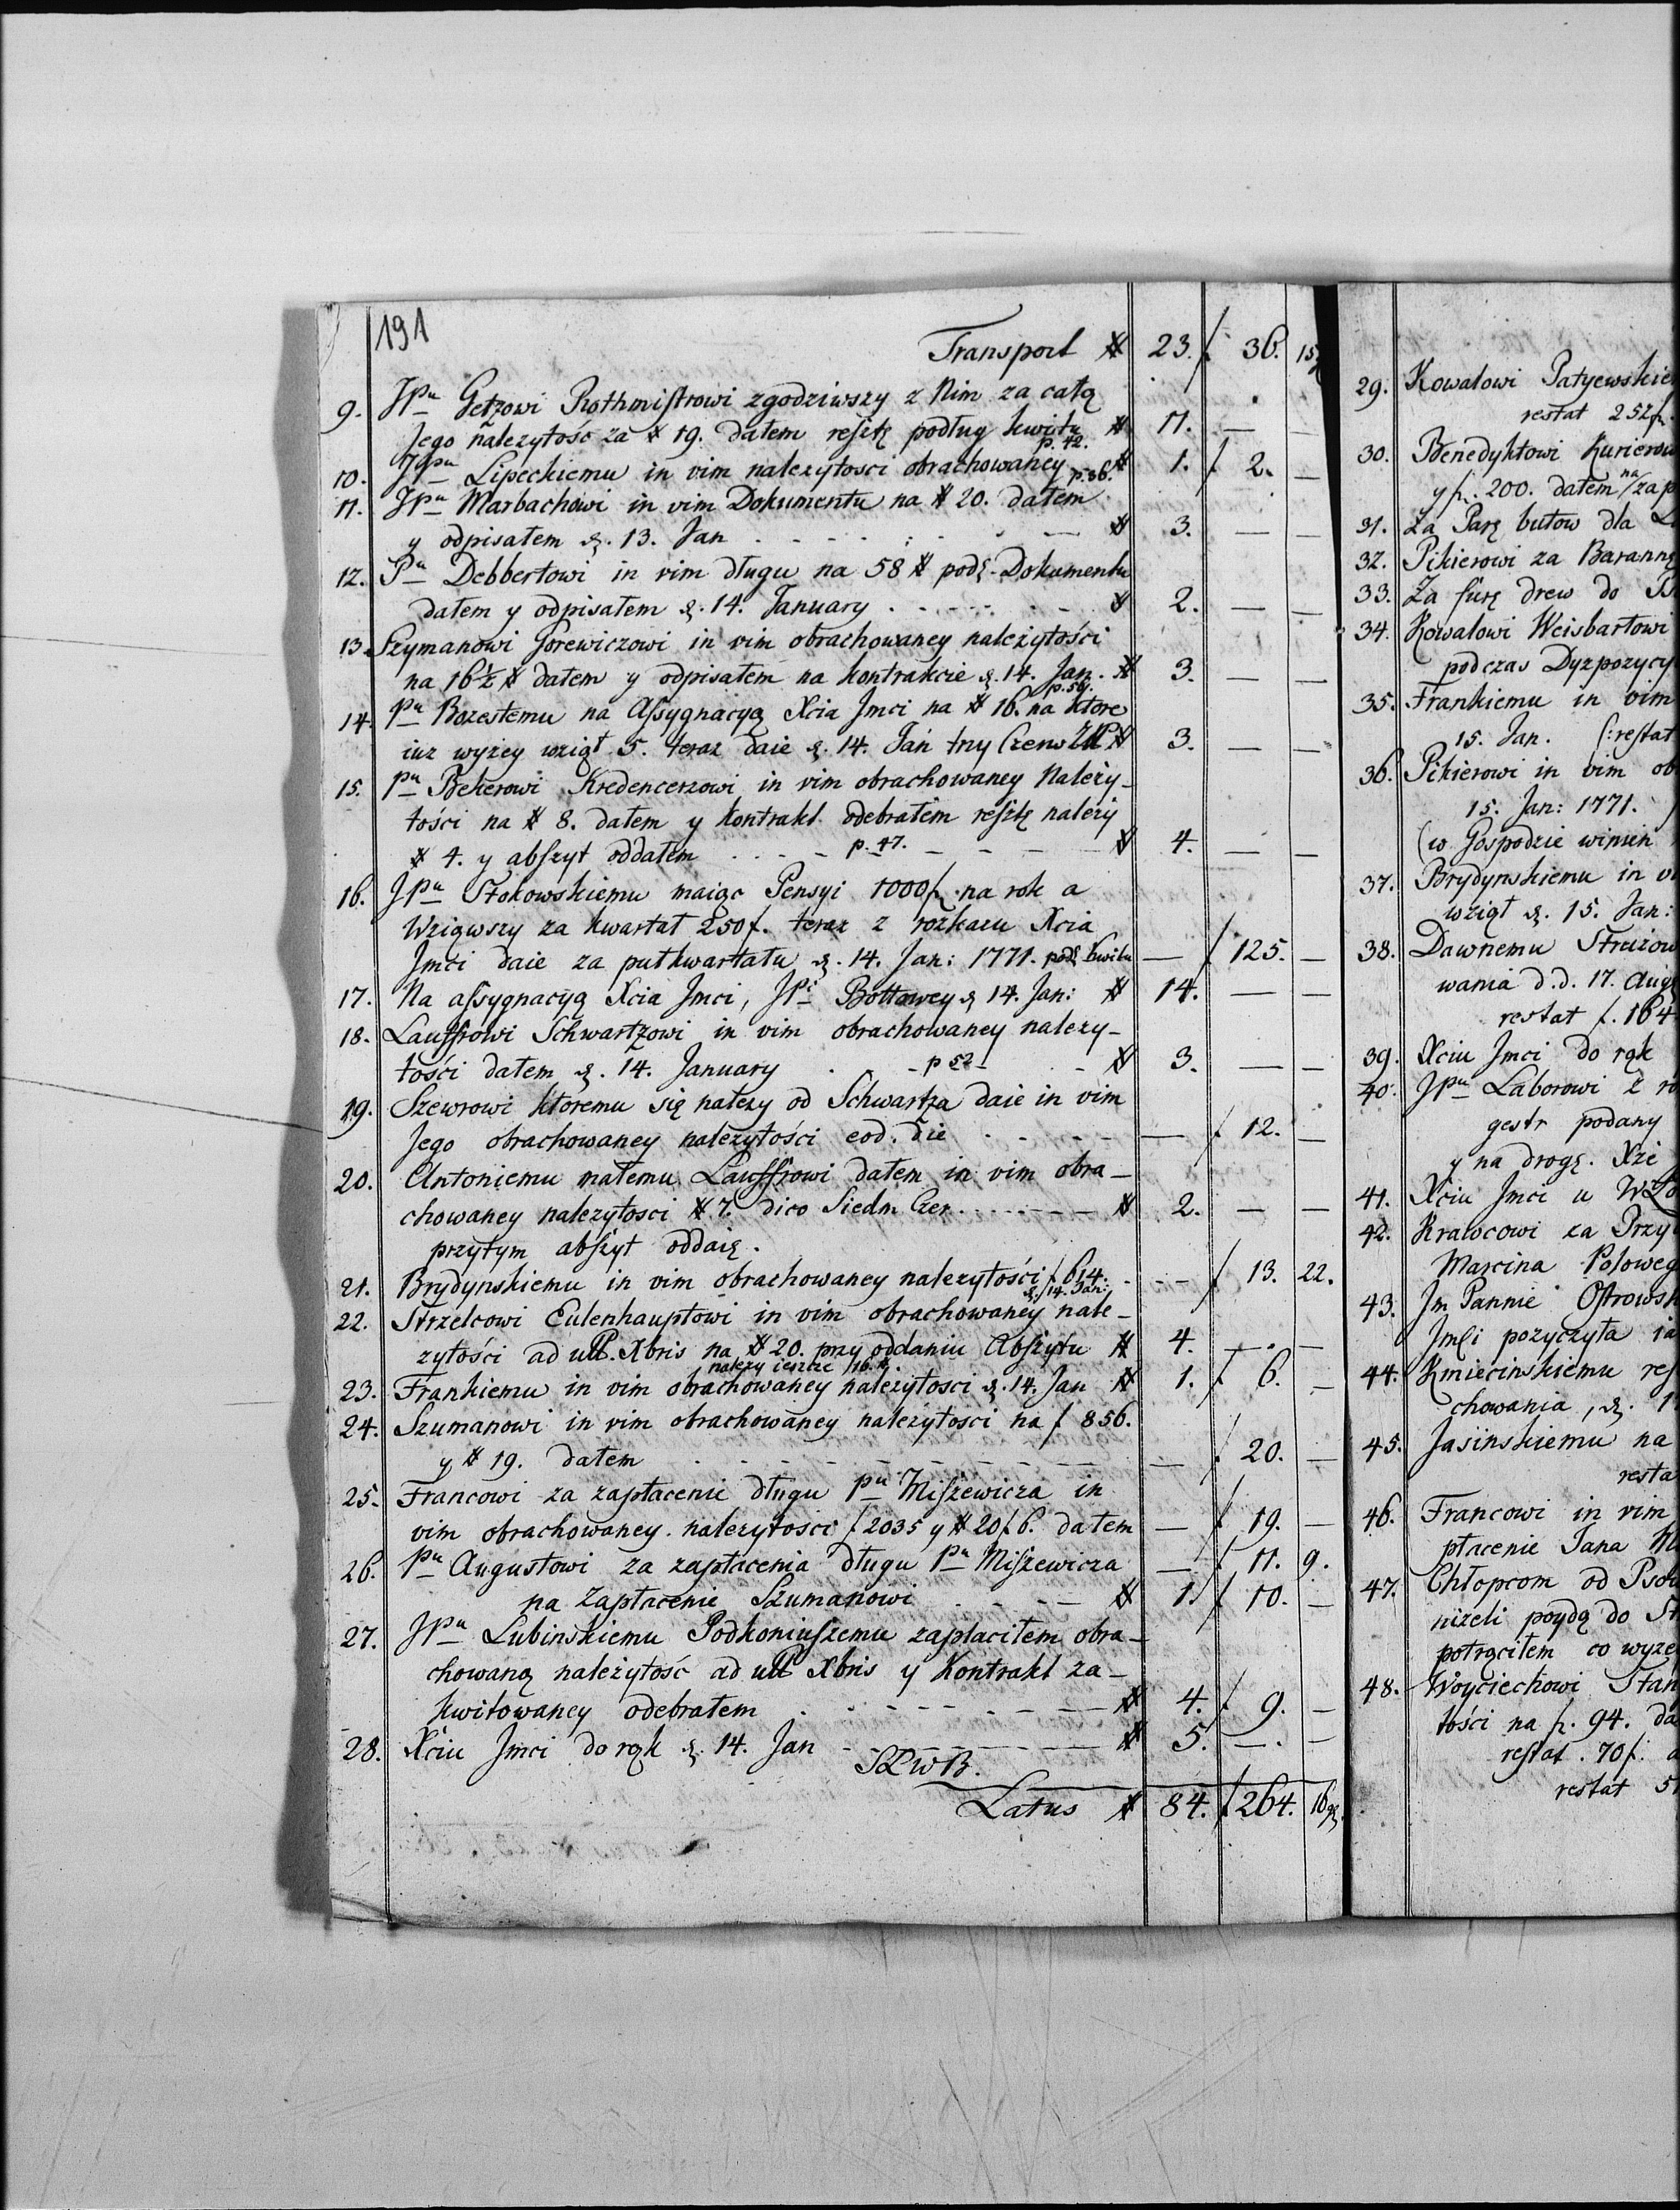 191
Transport # 23. f 36. 15
9. JPu Getzowi Rothmistrowi zgodziwszy z Nim za całą
Jego należytość za # 19. dałem resztę podług kwitu # 11. — —
p. 42.
10. JPu Lipeckiemu in vim należytosci obrachowaney p. 36. # 1. f 2. —
11. JPu Marbachowi in vim Dokumentu na # 20. dałem
y odpisałem d. 13. Jan # 3. — —
12. Pu Debbertowi in vim długu na 58 # podł. Dokumentu
dałem y odpisałem d. 14. January # 2. — —
13. Szymanowi Gorewiczowi in vim obrachowaney należytości
na 16½ # dałem y odpisałem na kontrakcie d. 14. Jan. # 3. — —
p. 59.
14. Pu Bozestemu na Assygnacyą Xcia Jmci na # 16. na które
iuz wyżey wziął 5. teraz daie d. 14. Jan try Czerw Zll # 3. — —
15. Pu Bekerowi Kredencerzowi in vim obrachowaney Należy-
tości na # 8. dałem y kontrakt odebrałem resztę należy
# 4. y abszyt oddałem p. 47. # 4. — —
16. JPu Stokowskiemu maiąc Pensyi 1000 f. na rok a
Wziąwszy za kwartał 250 f. teraz z rozkazu Xcia
Jmci daie za pułkwartału d. 14. Jan: 1771. podł kwitu — f 125. —
17. Na assygnacyą Xcia Jmci, JPi Bottowey d. 14. Jan: # 14. — —
18. Lauffrowi Schwartzowi in vim obrachowaney należy-
tości dałem d. 14. January p 52 # 3. — —
19. Szewrowi ktoremu się należy od Schwartza daie in vim
Jego obrachowaney należytości eod. die — f 12. —
20. Antoniemu małemu Lauffrowi dałem in vim obra-
chowaney należytosci # 7. dico Siedm Czer. # 2. — —
przytym abszyt oddaię.
21. Brydynskiemu in vim obrachowaney należytości f 614. — f 13. 22.
d. 14. Jan.
22. Strzelcowi Eulenhauptowi in vim obrachowaney nale-
żytości ad ult. Xbris na # 20. przy oddaniu Abszytu # 4. — —
należy ieszcze 16 #.
23. Frankiemu in vim obrachowaney należytosci d. 14. Jan # 1. f 6. —
24. Szumanowi in vim obrachowaney należytosci na f 856.
y # 19. dałem — f 20. —
25. Francowi za zapłacenie długu Pu Miszewicza in
vim obrachowaney należytości f 2035 y # 20 f 6. dałem — f 19. —
26. Pu Augustowi za zapłacenia długu Pu Miszewicza — f 11. 9.
na Zapłacenie Szumanowi # 1. f 10. —
27. JPu Lubinskiemu Podkoniuszemu zapłaciłem obra-
chowaną należytość ad ult Xbris y Kontrakt za-
kwitowaney odebrałem # 4. f 9. —
28. Xciu Jmci do rąk d. 14. Jan # 5. — —
SZwB.
Latus # 84. f 264. 16 gr
29. Kowalowi Patyewskie
restat 252 f.
30. Benedyktowi Kurierow
y f. 200. dałem na zap
31. Za Parę butow dla
32. Pikierowi za Baranną
33. Za furę drew do
34. Kowalowi Weisbartowi
podczas Dyzpozycy
35. Frankiemu in vim
15. Jan. (:restat
36. Pikierowi in vim ob
15. Jan: 1771.
(w Gospodzie winien
37. Brydynskiemu in vi
wziął d. 15. Jan:
38. Dawnemu Struzow
wania d.d. 17. Aug
restat f. 164
39. Xciu Jmci do rąk
40. JPu Laborowi z ro
gestr podany
y na drogę. Xże
41. Xciu Jmci u
42. Krawcowi za Przy
Marcina Poloweg
43. Jm Pannie Ostrowsk
Jmści pozyczyła ia
44. Kmiecinskiemu res
chowania, d. 1
45. Jasinskiemu na
resta
46. Francowi in vim
płacenie Jana
47. Chłopcom od Psow
niżeli poydą do
potrąciłem co wyże
48. Woyciechowi Stan
tości na f. 94. da
restat. 70 f.
restat 5